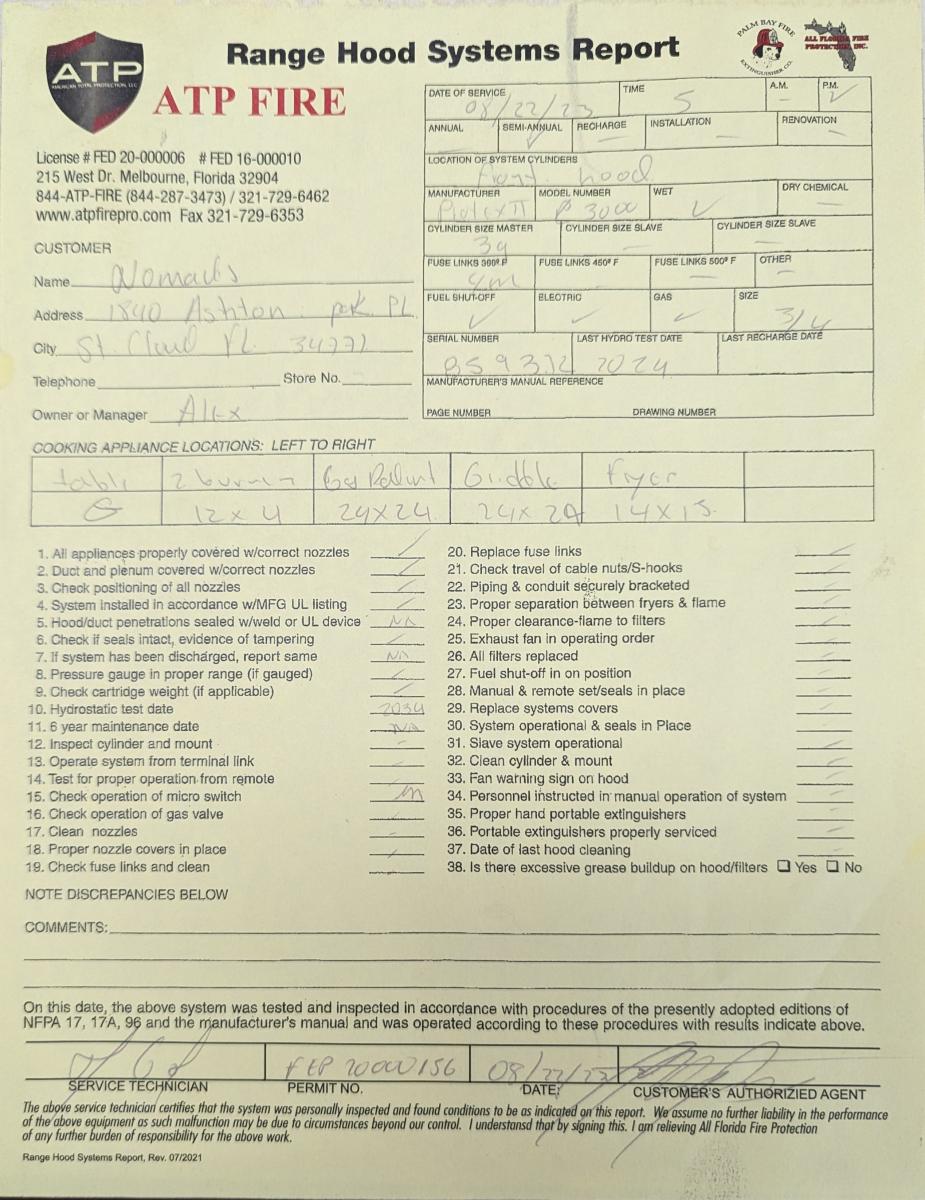 Range Hood Systems Report
PALM BAY FIRE
EXTINGUISHER CO.
ALL FLORIDA FIRE
PROTECTION, INC.
ATP
AMERICAN TOTAL PROTECTION, LLC
ATP FIRE
License # FED 20-000006 # FED 16-000010
215 West Dr. Melbourne, Florida 32904
844-ATP-FIRE (844-287-3473) / 321-729-6462
www.atpfirepro.com Fax 321-729-6353
CUSTOMER
Name Nomads
Address 1840 Ashton park PL
City St Cloud FL 34771
Telephone Store No.
Owner or Manager Alex
DATE OF SERVICE 08/22/23 TIME 5 A.M. – P.M. ✓
ANNUAL – SEMI-ANNUAL ✓ RECHARGE – INSTALLATION – RENOVATION –
LOCATION OF SYSTEM CYLINDERS hood
MANUFACTURER Protex II MODEL NUMBER P 3000 WET ✓ DRY CHEMICAL –
CYLINDER SIZE MASTER 3g CYLINDER SIZE SLAVE – CYLINDER SIZE SLAVE –
FUSE LINKS 360º F FUSE LINKS 450º F – FUSE LINKS 500º F – OTHER –
FUEL SHUT-OFF ✓ ELECTRIC ✓ GAS ✓ SIZE 3/4
SERIAL NUMBER LAST HYDRO TEST DATE 2024 LAST RECHARGE DATE
MANUFACTURER'S MANUAL REFERENCE
PAGE NUMBER DRAWING NUMBER
COOKING APPLIANCE LOCATIONS: LEFT TO RIGHT
table 2 burner Griddle Fryer
12 x 4 24x24 24x24 14x15
1. All appliances properly covered w/correct nozzles ✓
2. Duct and plenum covered w/correct nozzles ✓
3. Check positioning of all nozzles ✓
4. System installed in accordance w/MFG UL listing ✓
5. Hood/duct penetrations sealed w/weld or UL device NA
6. Check if seals intact, evidence of tampering ✓
7. If system has been discharged, report same NA
8. Pressure gauge in proper range (if gauged) ✓
9. Check cartridge weight (if applicable) ✓
10. Hydrostatic test date 2034
11. 6 year maintenance date NA
12. Inspect cylinder and mount ✓
13. Operate system from terminal link ✓
14. Test for proper operation from remote ✓
15. Check operation of micro switch
16. Check operation of gas valve ✓
17. Clean nozzles ✓
18. Proper nozzle covers in place ✓
19. Check fuse links and clean ✓
20. Replace fuse links ✓
21. Check travel of cable nuts/S-hooks ✓
22. Piping & conduit securely bracketed ✓
23. Proper separation between fryers & flame ✓
24. Proper clearance-flame to filters ✓
25. Exhaust fan in operating order ✓
26. All filters replaced ✓
27. Fuel shut-off in on position ✓
28. Manual & remote set/seals in place ✓
29. Replace systems covers ✓
30. System operational & seals in Place ✓
31. Slave system operational ✓
32. Clean cylinder & mount ✓
33. Fan warning sign on hood ✓
34. Personnel instructed in manual operation of system ✓
35. Proper hand portable extinguishers ✓
36. Portable extinguishers properly serviced ✓
37. Date of last hood cleaning
38. Is there excessive grease buildup on hood/filters ❑ Yes ❑ No
NOTE DISCREPANCIES BELOW
COMMENTS:
On this date, the above system was tested and inspected in accordance with procedures of the presently adopted editions of
NFPA 17, 17A, 96 and the manufacturer's manual and was operated according to these procedures with results indicate above.
FEP 20000156 08/22/23
SERVICE TECHNICIAN PERMIT NO. DATE: CUSTOMER'S AUTHORIZIED AGENT
The above service technician certifies that the system was personally inspected and found conditions to be as indicated on this report. We assume no further liability in the performance
of the above equipment as such malfunction may be due to circumstances beyond our control. I understansd that by signing this. I am relieving All Florida Fire Protection
of any further burden of responsibility for the above work.
Range Hood Systems Report, Rev. 07/2021